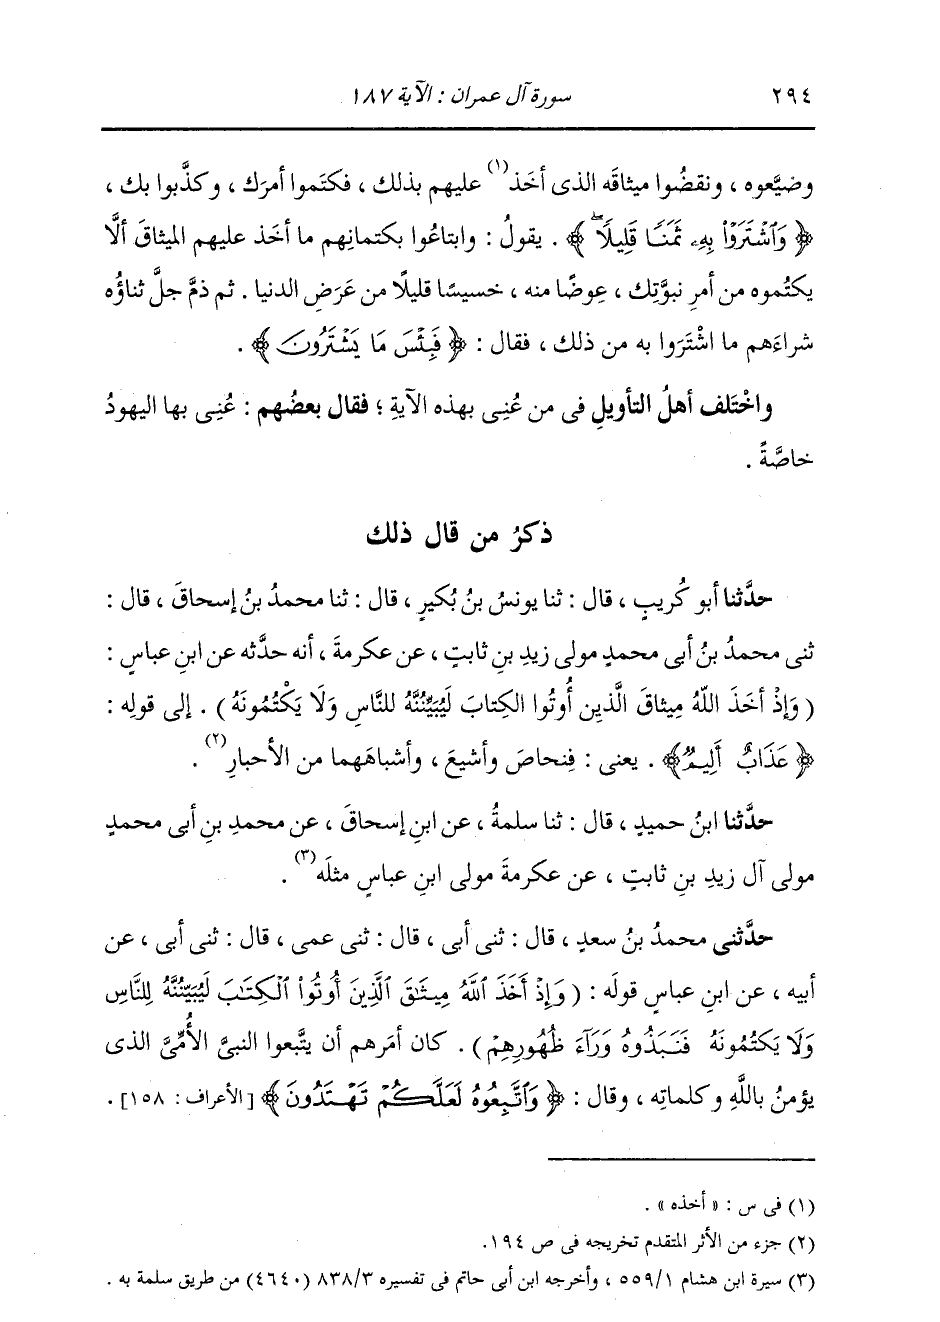 ٢٩٤ سورة آل عمران : الآية ١٨٧
وضيَّعوه ، ونقضُوا ميثاقَه الذى أخَذ(١) عليهم بذلك ، فكتَموا أمرَك ، وكذَّبوا بك ،
﴿ وَٱشْتَرَوْاْ بِهِۦ ثَمَنًا قَلِيلًاۖ ﴾ . يقولُ : وابتاعُوا بكتمانِهم ما أخَذ عليهم الميثاقَ ألَّا
يكتُموه من أمرِ نبوَّتِك ، عِوضًا منه ، خسيسًا قليلًا من عَرَضِ الدنيا . ثم ذمَّ جلَّ ثناؤُه
شراءَهم ما اشْتَرَوا به من ذلك ، فقال : ﴿ فَبِئْسَ مَا يَشْتَرُونَ ﴾ .
واخْتَلف أهلُ التأويلِ فى من عُنِى بهذه الآيةِ ؛ فقال بعضُهم : عُنِى بها اليهودُ
خاصَّةً .
ذكرُ من قال ذلك
حدَّثنا أبو كُريبٍ ، قال : ثنا يونسُ بنُ بُكيرٍ ، قال : ثنا محمدُ بنُ إسحاقَ ، قال :
ثنى محمدُ بنُ أبى محمدٍ مولى زيدِ بنِ ثابتٍ ، عن عكرمةَ ، أنه حدَّثه عن ابنِ عباسٍ :
( وَإِذْ أخَذَ اللَّهُ مِيثاقَ الَّذِين أُوتُوا الكِتابَ لَيُبَيِّنُنَّهُ للنَّاسِ وَلَا يَكْتُمُونَهُ ) . إلى قولِه :
﴿ عَذَابٌ أَلِيمٌ ﴾ . يعنى : فِنحاصَ وأشيعَ ، وأشباهَهما من الأحبارِ(٢) .
حدَّثنا ابنُ حميدٍ ، قال : ثنا سلمةُ ، عن ابنِ إسحاقَ ، عن محمدِ بنِ أبى محمدٍ
مولى آل زيدِ بنِ ثابتٍ ، عن عكرمةَ مولى ابنِ عباسٍ مثلَه(٣) .
حدَّثنى محمدُ بنُ سعدٍ ، قال : ثنى أبى ، قال : ثنى عمى ، قال : ثنى أبى ، عن
أبيه ، عن ابنِ عباسٍ قولَه : ( وَإِذْ أَخَذَ ٱللَّهُ مِيثَٰقَ ٱلَّذِينَ أُوتُواْ ٱلْكِتَٰبَ لَيُبَيِّنُنَّهُ لِلنَّاسِ
وَلَا يَكْتُمُونَهُ فَنَبَذُوهُ وَرَآءَ ظُهُورِهِمْ ) . كان أمَرهم أن يتَّبعوا النبىَّ الأُمِّىَّ الذى
يؤمنُ باللَّهِ وكلماتِه ، وقال : ﴿ وَٱتَّبِعُوهُ لَعَلَّكُمْ تَهْتَدُونَ ﴾ [ الأعراف : ١٥٨] .
(١) فى س : « أخذه » .
(٢) جزء من الأثر المتقدم تخريجه فى ص ١٩٤.
(٣) سيرة ابن هشام ٥٥٩/١ ، وأخرجه ابن أبى حاتم فى تفسيره ٨٣٨/٣ (٤٦٤٠) من طريق سلمة به .